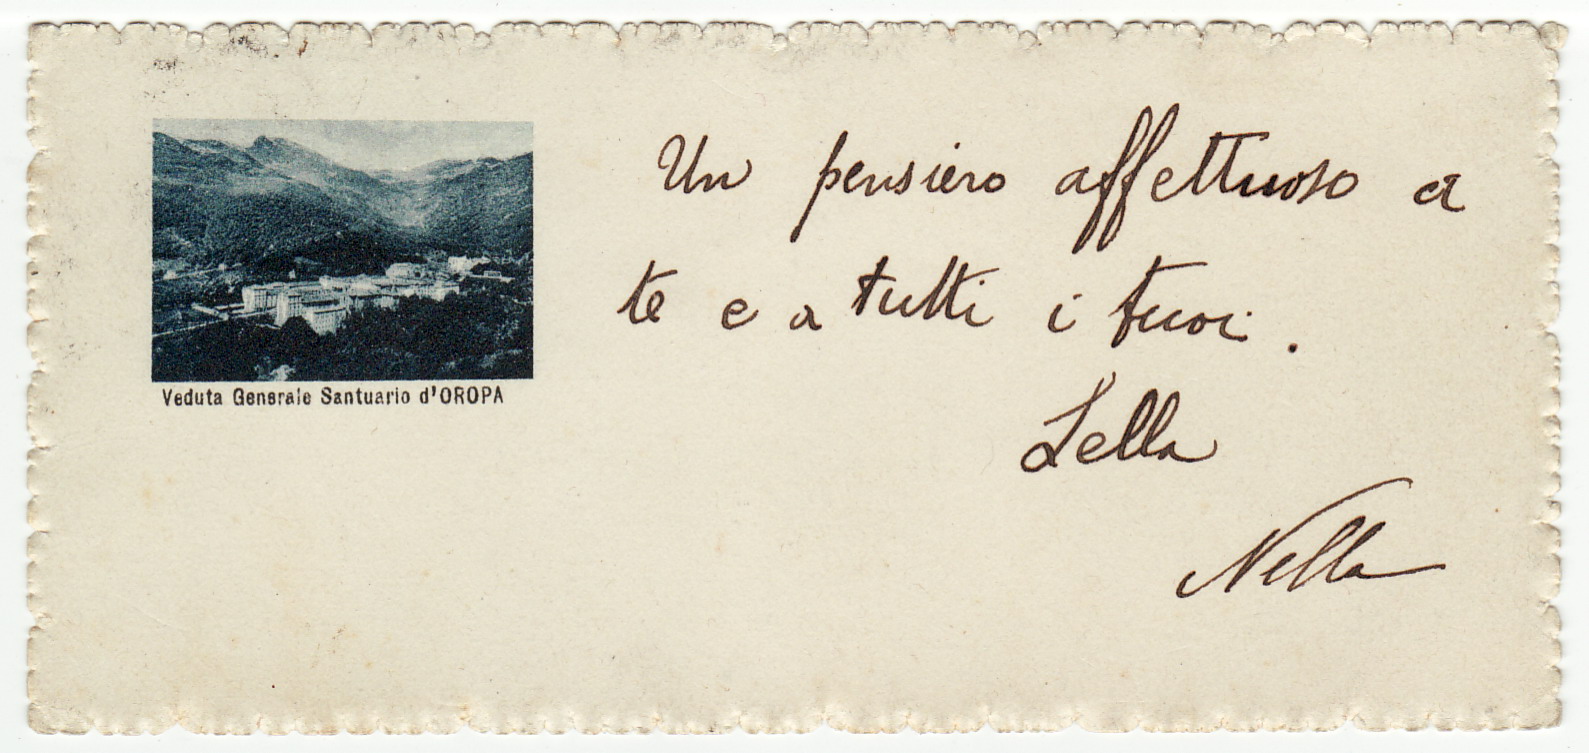 Veduta Generale Santuario d'OROPA
Un pensiero affettuoso a
te e a tutti i tuoi.
Lella
Nella